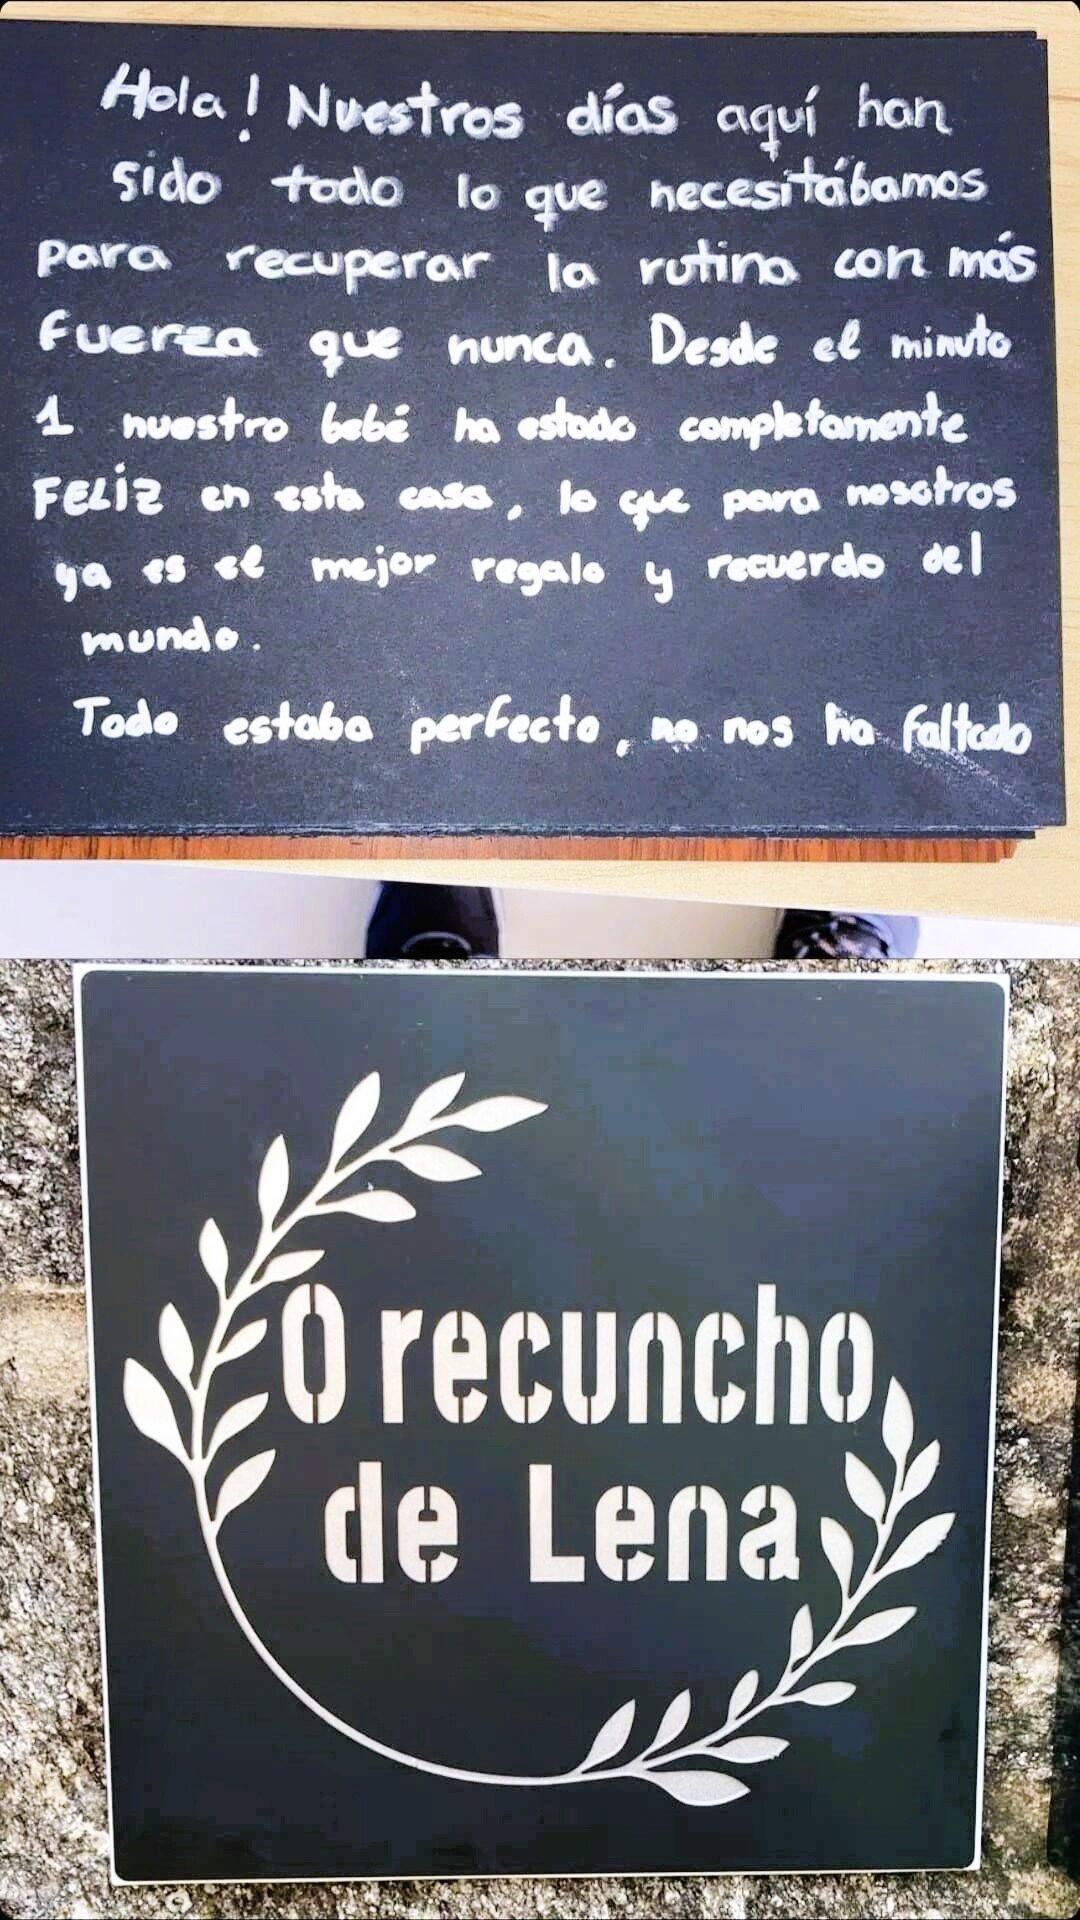 Hola! Nuestros días aquí han
sido todo lo que necesitábamos
para recuperar la rutina con más
fuerza que nunca. Desde el minuto
1 nuestro bebé ha estado completamente
FELiZ en esta casa, lo que para nosotros
ya es el mejor regalo y recuerdo del
mundo.
Todo estaba perfecto, no nos ha faltado
O recuncho
de Lena